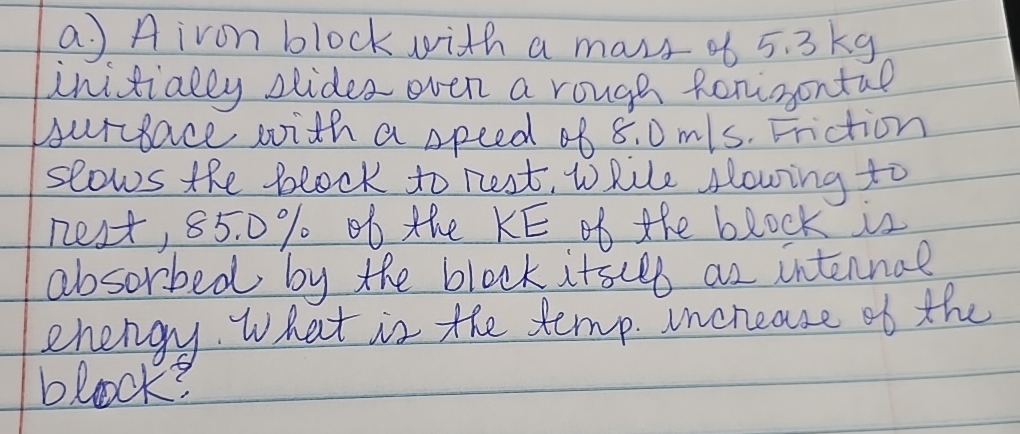 a.) A iron block with a mass of 5.3 kg
initially slides over a rough horizontal
surface with a speed of 8.0 m/s. Friction
slows the block to rest. While slowing to
rest, 85.0% of the KE of the block is
absorbed by the block itself as internal
energy. What is the temp. increase of the
block?